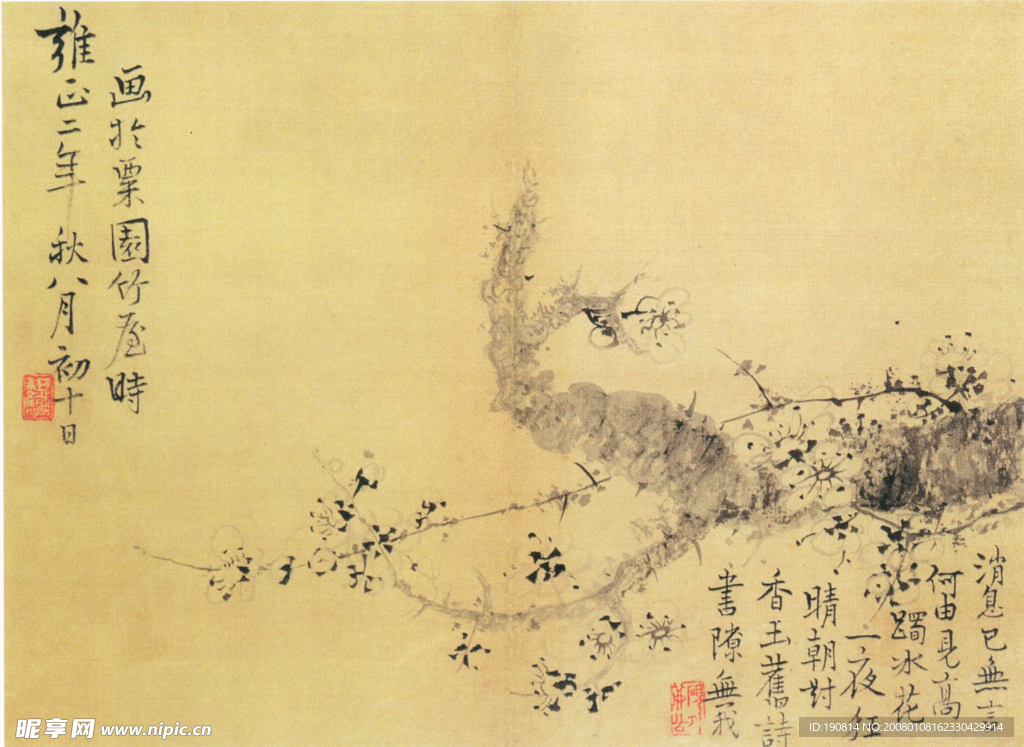 消息已無言
何由見高
躅冰花
一夜紅
晴朝對
香玉舊詩
書隙無我
画於栗園竹屋時
雍正二年秋八月初十日
昵享网 www.nipic.cn
ID:190814 NO:20080108162330429914